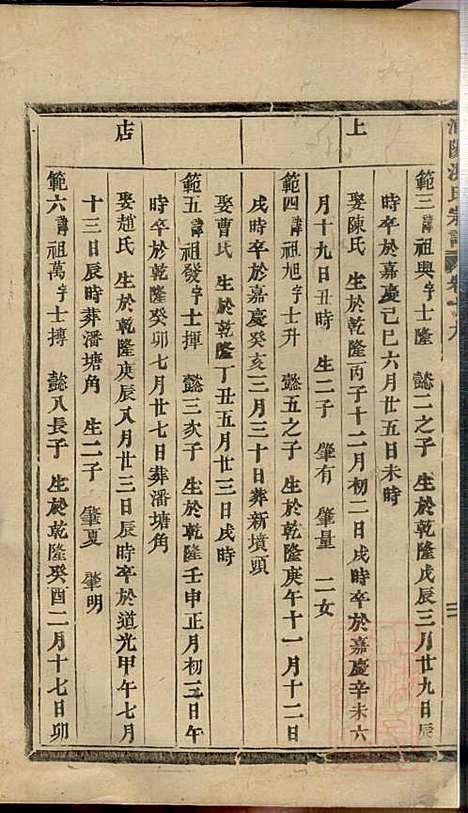 範三諱祖興字士隆 懿二之子 生於乾隆戊辰三月廿九日辰
時卒於嘉慶己巳六月廿五日未時
娶陳氏 生於乾隆丙子十二月初二日戌時卒於嘉慶辛未六
月十九日丑時 生二子 肇有 肇量 二女
範四諱祖旭字士升 懿五之子 生於乾隆庚午十一月十二日
戌時卒於嘉慶癸亥三月三十日葬新墳頭
娶曹氏 生於乾隆丁丑五月廿三日戌時
範五諱祖發字士揮 懿三亥子 生於乾隆壬申正月初二日午
時卒於乾隆癸卯七月廿七日葬潘塘角
娶趙氏 生於乾隆庚辰八月廿三日辰時卒於道光甲午七月
十三日辰時葬潘塘角 生二子 肇夏 肇明
範六諱祖萬字士摶 懿八長子 生於乾隆癸酉二月十七日卯
上
店
氏宗譜
卷十九
三